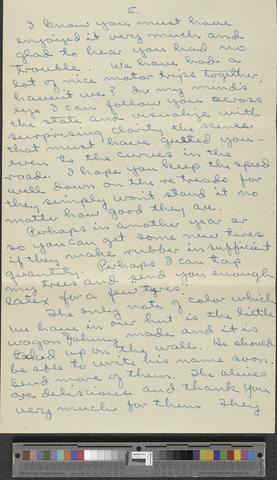 5.
I know you must have
enjoyed it very much and
glad to hear you had no
trouble. We have had a
lot of nice motor trips together,
haven't we? In my mind's
eye I can follow you across
the state and visualize with
surprising clarity the scenes
that must have greeted you -
even to the curves in the
road. I hope you keep the speed
well down on the retreads for
they simply won't stand it no
matter how good they are.
Perhaps in another year or
so you can get some new tires
if they make rubber in sufficient
quantity. Perhaps I can tap
my trees and send you enough
latex for a few "tyres".
The only note of color which
we have in our hut is the little
wagon Johnny made and it is
tacked up on the wall. He should
be able to write his name soon.
Send more of them. The olives
are delicious and thank you
very much for them. They